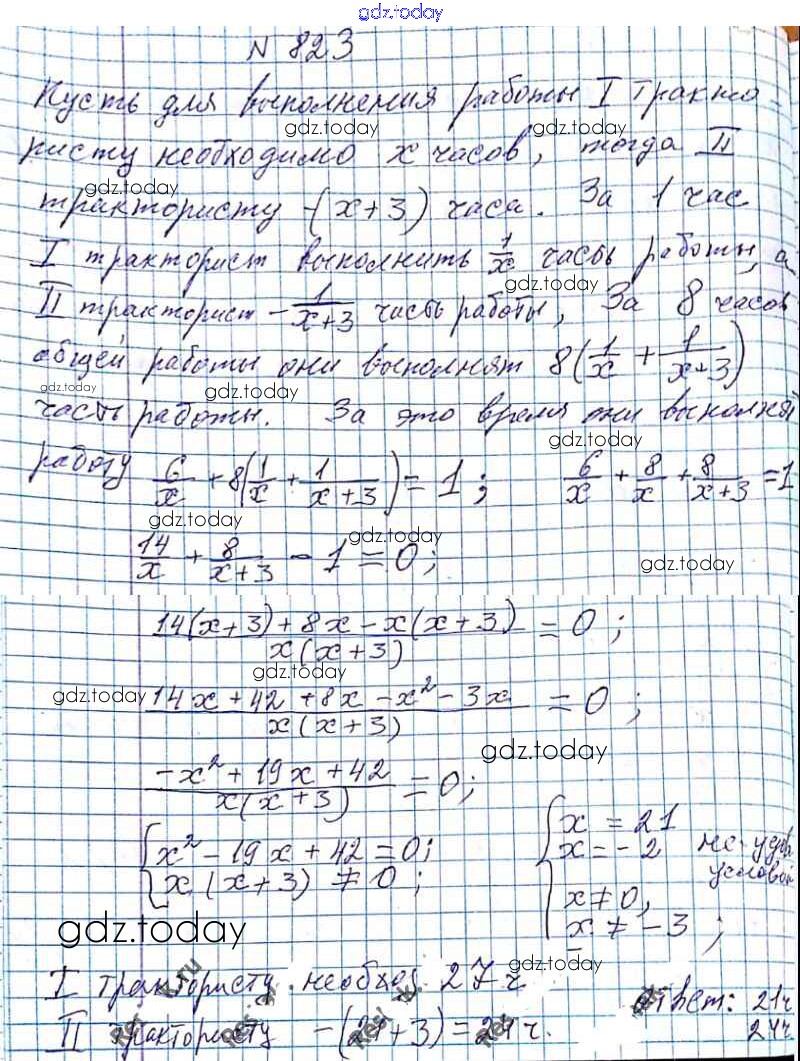 gdz.today
N 823
Пусть для выполнения работы I тракто-
gdz.today gdz.today
ристу необходимо x часов, тогда II
gdz.today
трактористу -(x+3) часа. За 1 час
I тракторист выполнить 1/x часть работы, а
gdz.today
II тракторист - 1/(x+3) часть работы, За 8 часов
общей работы они выполнят 8(1/x + 1/(x+3))
gdz.today gdz.today
часть работы. За это время они выполнят
gdz.today
работу 6/x + 8(1/x + 1/(x+3)) = 1; 6/x + 8/x + 8/(x+3) = 1
gdz.today gdz.today
14/x + 8/(x+3) - 1 = 0;
gdz.today
(14(x+3)+8x-x(x+3))/(x(x+3)) = 0;
gdz.today
gdz.today
(14x+42+8x-x²-3x)/(x(x+3)) = 0;
gdz.today
(-x²+19x+42)/(x(x+3)) = 0;
{x²-19x+42=0; {x = 21
x(x+3) ≠ 0; x = -2 не удов. условой
{x≠0,
x ≠ -3;
gdz.today
gdz.today
I трактористу необход 27 ч
II трактористу -(21+3)=24 ч.
Ответ: 21ч
24ч.